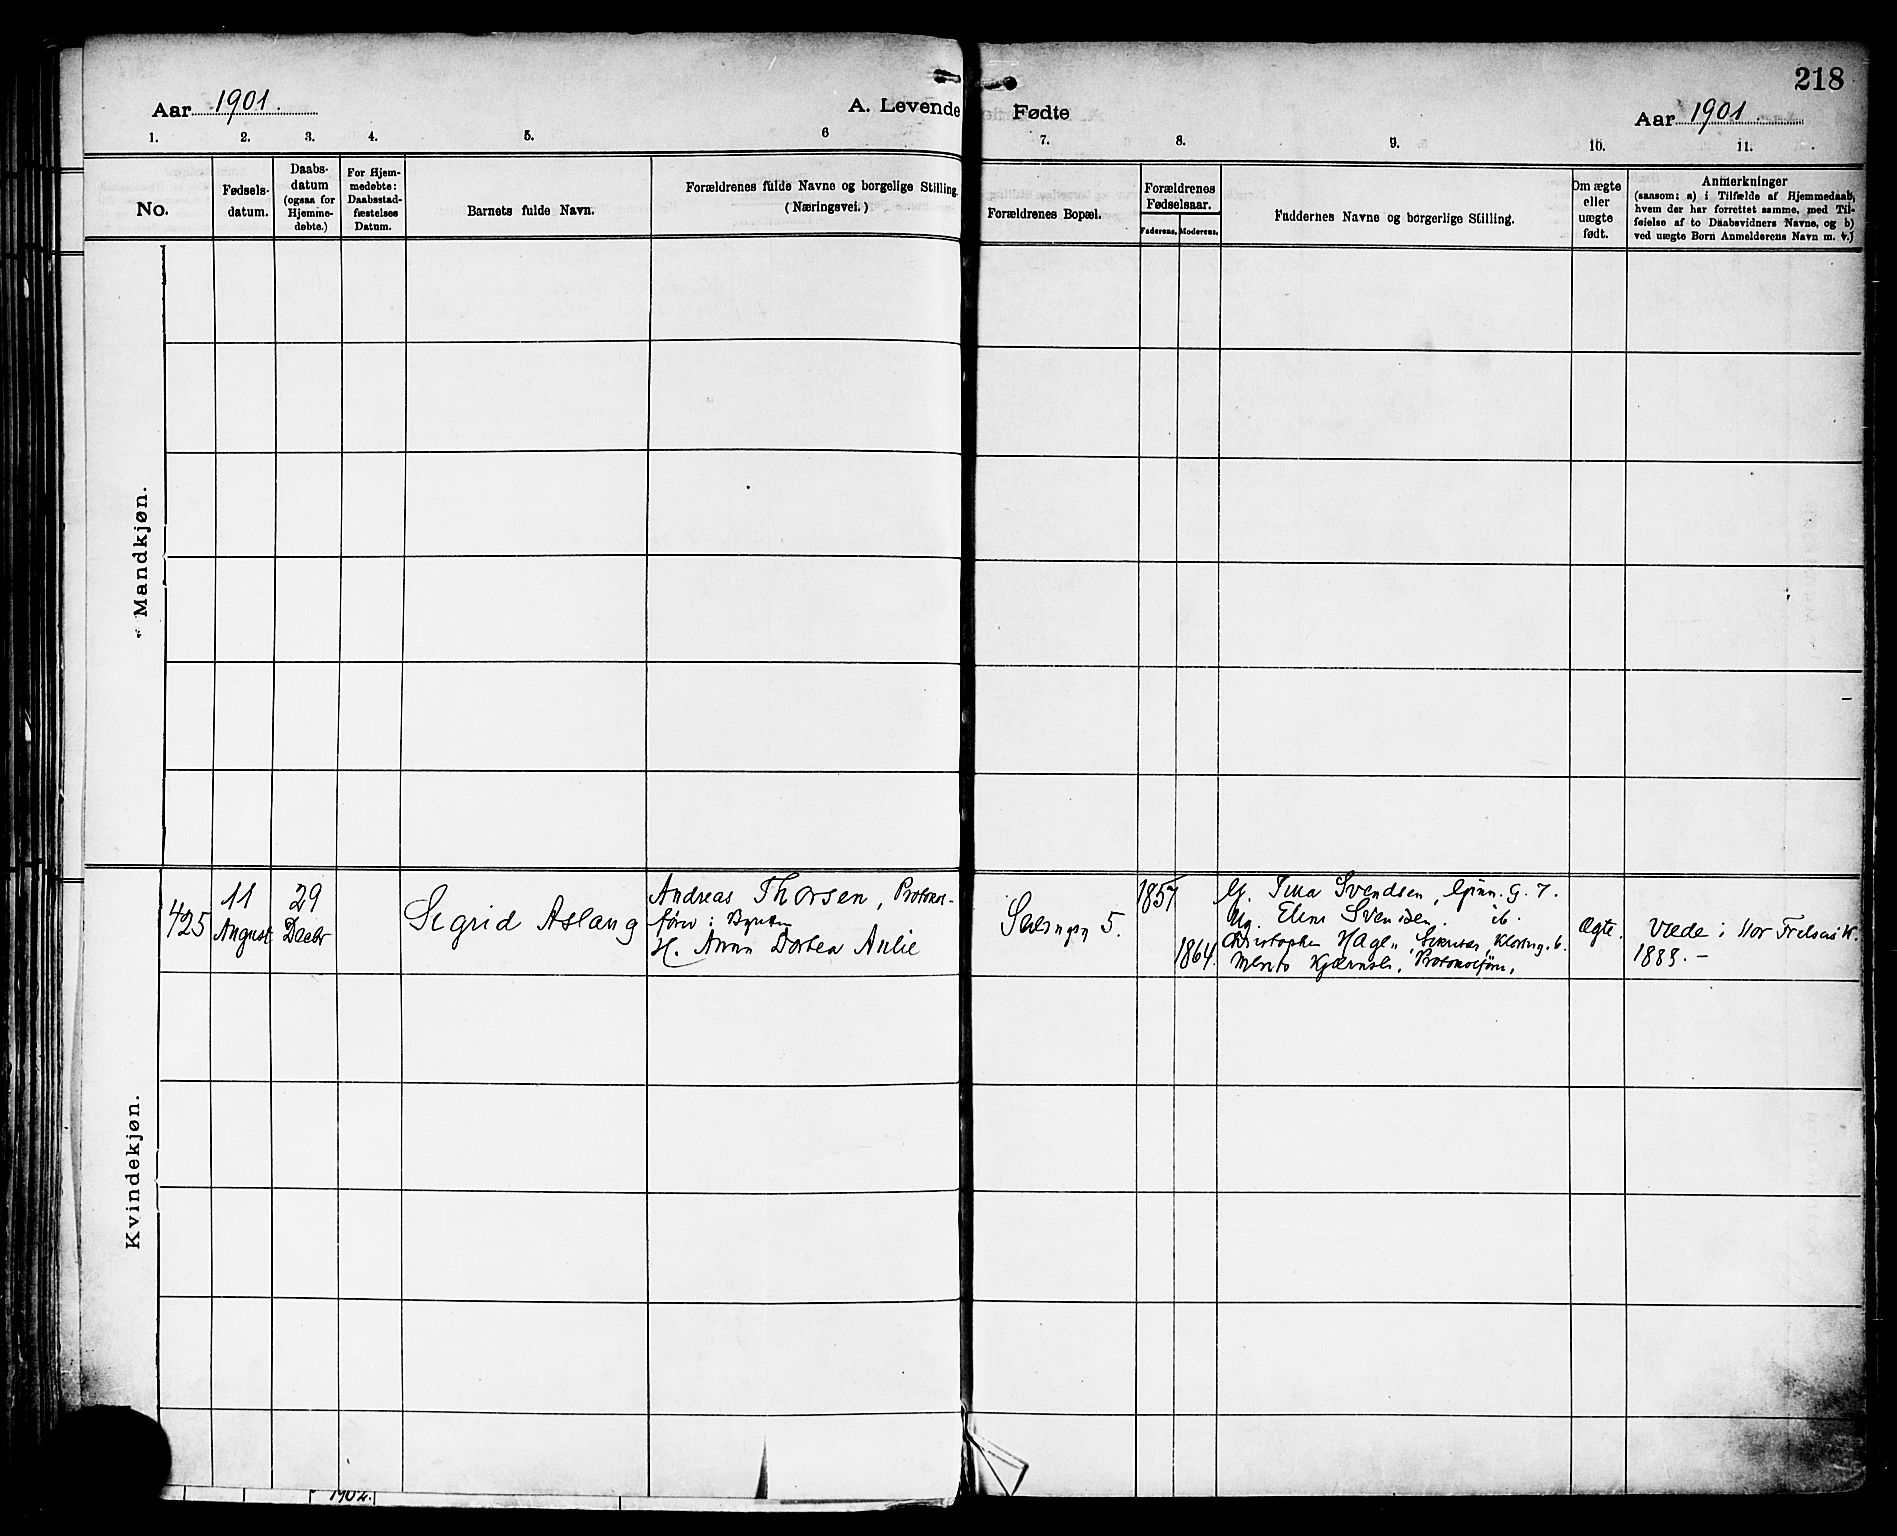 218
Aar 1901.
A. Levende Fødte
Aar 1901.
1. 2. 3. 4. 5. 6 7. 8. 9. 10. 11.
No.
Fødsels-
datum.
Daabs-
datum
(ogsaa for
Hjemme-
døbte.)
For Hjem-
medøbte:
Daabsstad-
fæstelses
Datum.
Barnets fulde Navn.
Forældrenes fulde Navne og borgelige Stilling.
(Næringsvei.)
Forældrenes Bopæl.
Forældrenes
Fødselsaar.
Faderens. Moderens.
Faddernes Navne og borgerlige Stilling.
Om ægte
eller
uægte
født.
Anmerkninger
(saasom: a) i Tilfælde af Hjemmedaab,
hvem der har forrettet samme, med Til-
føielse af to Daabsvidners Navne, og b)
ved uægte Børn Anmelderens Navn m. v.)
Mandkjøn.
Kvindekjøn.
425
11
August
29
Decbr
Sigrid Aslaug
Andreas Thorsen, Protokol-
fører i
H. Anna Dortea Aulie
5.
1857
1864.
Svendsen, G. 7.
Elene Svendsen ib.
Christopher Hagen, 6.
Protokolfører,
Ægte.
Viede i Vor Frelsers K.
1889. –
1902.